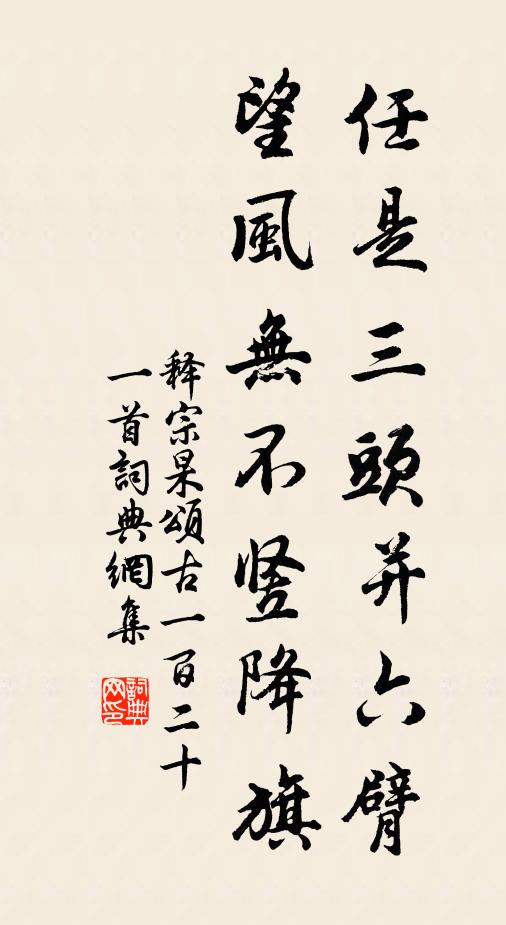 任是三頭并六臂
望風無不竖降旗
释宗杲頌古一百二十
一首詞典網集
詞典
网印